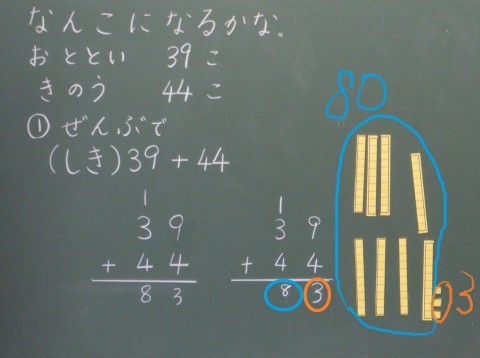 なんこになるかな。
おととい 39こ
きのう 44こ
① ぜんぶで
(しき)39+44
1
39
+44
83
1
39
+44
83
80
3